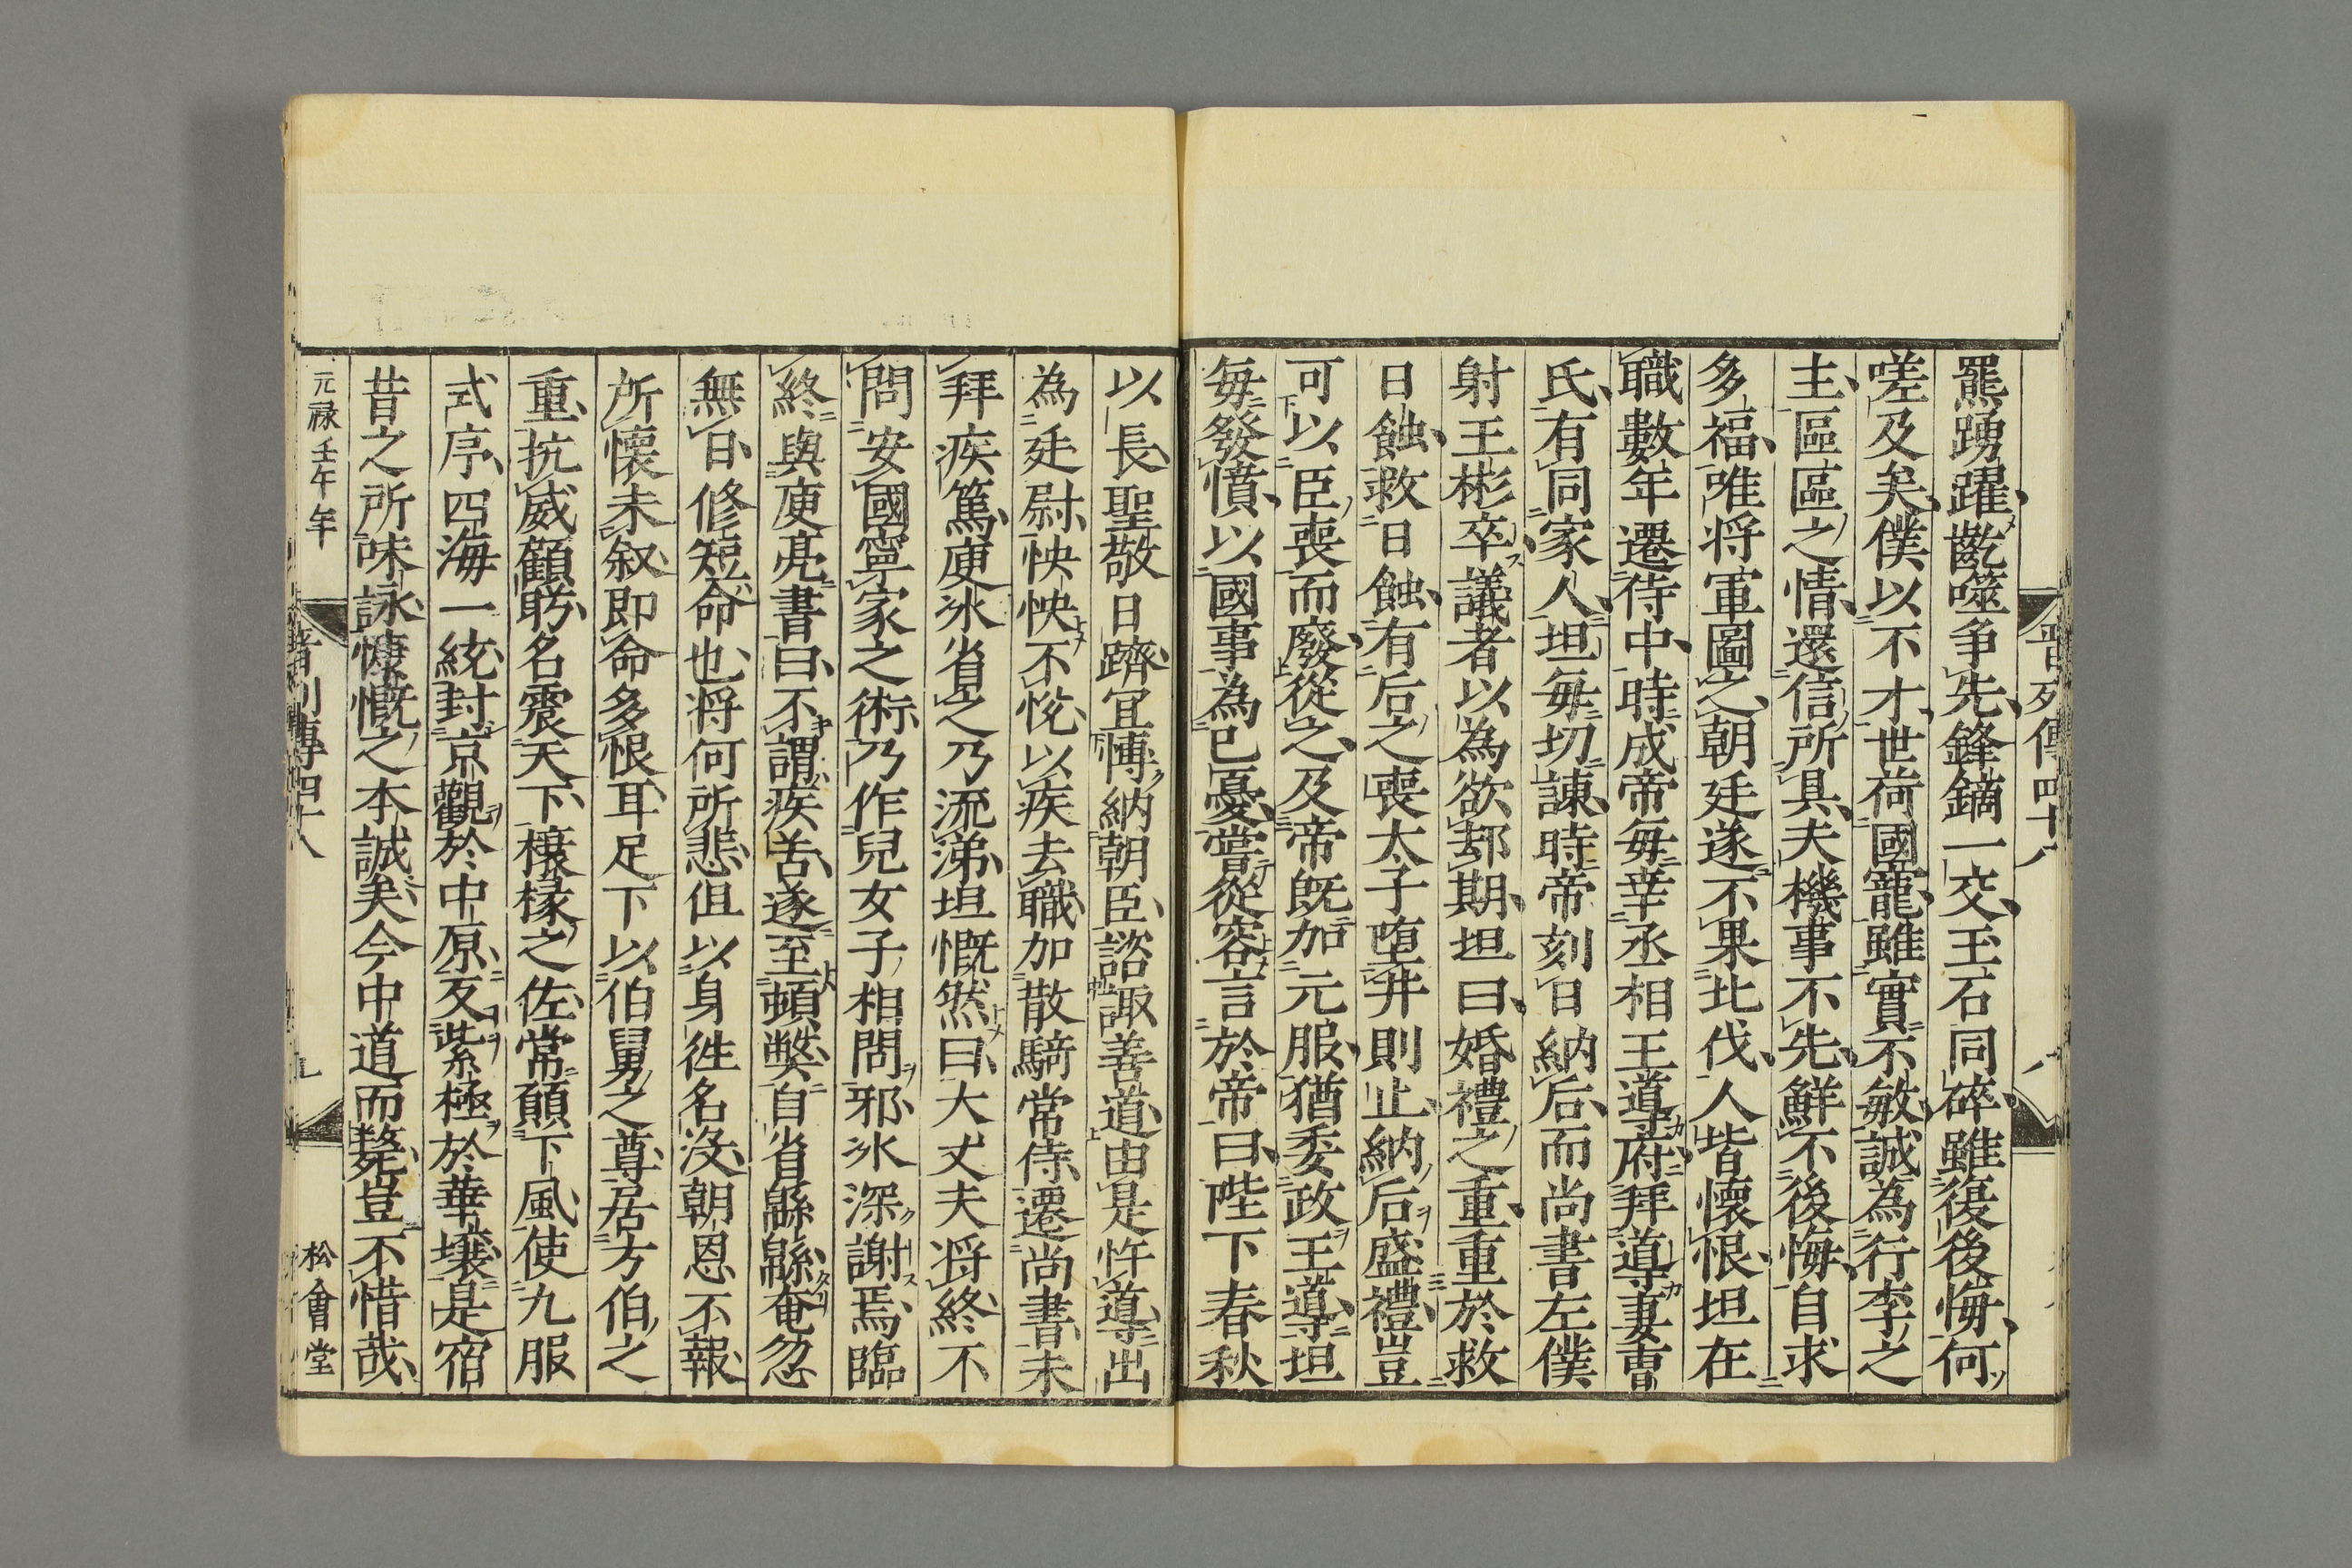 晋列傳四十八
羆踴躍齕噬争先鋒鏑一交玉石同碎雖復後悔何
嗟及矣僕以不才世荷國寵雖實不敏誠為行李之
主區區之情還信所具夫機事不先鮮不後悔自求
多福唯将軍圖之朝廷遂不果北伐人皆懷恨坦在
職數年遷侍中時成帝毎幸丞相王導府拜導妻曹
氏有同家人坦毎切諫時帝刻日納后而尚書左僕
射王彬卒議者以為欲却期坦曰婚禮之重重於救
日蝕救日蝕有后之喪太子堕井則止納后盛禮豈
可以臣喪而廢從之及帝既加元服猶委政王導坦
毎發憤以國事為己憂嘗從容言於帝曰陛下春秋
以長聖敬日躋宜博納朝臣諮諏善道由是忤導出
為廷尉怏怏不恱以疾去職加散騎常侍遷尚書未
拜疾篤庾氷省之乃流涕坦慨然曰大丈夫将終不
問安國寧家之術乃作兒女子相問邪氷深謝焉臨
終與庾亮書曰不謂疾苦遂至頓弊自省緜緜奄忽
無日修短命也将何所悲但以身徃名沒朝恩不報
所懷未叙即命多恨耳足下以伯舅之尊居方伯之
重抗威顧眄名震天下榱椽之佐常願下風使九服
式序四海一統封京觀於中原反紫極於華壤是宿
昔之所味詠慷慨之本誠矣今中道而斃豈不惜哉
元禄壬午年
晋列傳四十八
九
松會堂